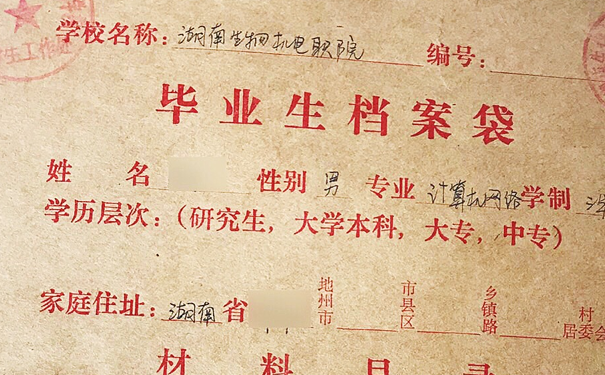 生工作处
学校名称：湖南生物机电职院 编号：
毕业生档案袋
姓名 性别 男 专业 计算机网络 学制
学历层次：（研究生，大学本科，大专，中专）
家庭住址：湖南省 地州市 市县区 乡镇路 村居委会
材料目录